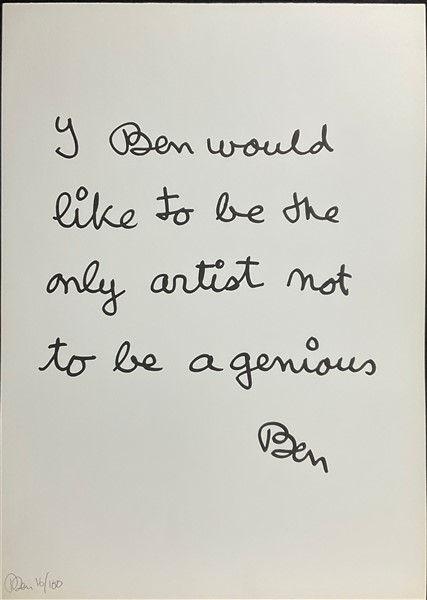 I Ben would
like to be the
only artist not
to be a genious
Ben
Ben 16/100